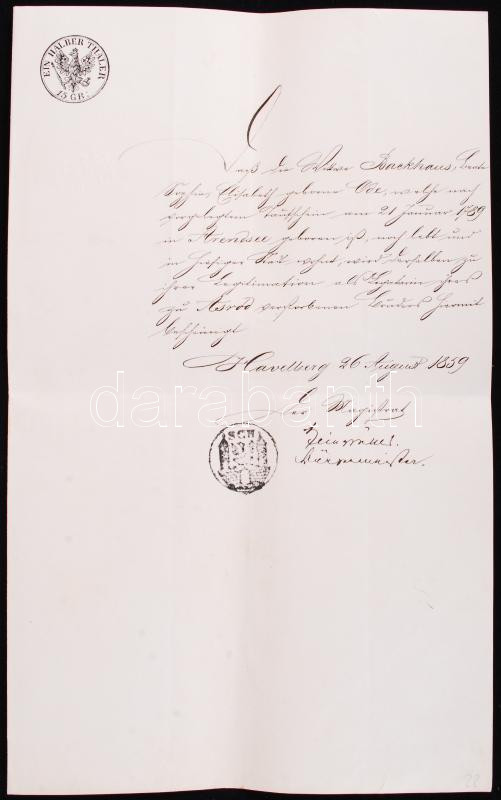 EIN HALBER THALER
15 GR:
Daß die Witwe Backhaus,
Sophie, Elisabeth geborne Ode, welche nach
vorgelegtem Taufschein am 21 Januar 1789
in Arendsee geboren ist, noch lebt und
in hiesiger Stadt wohnt, wird derselben zu
ihrer Legitimation als ihres
zu verstorbenen Bruders hiermit
bescheinigt
Havelberg 26 August 1859
Der Magistrat
Bürgermeister.
darabanth